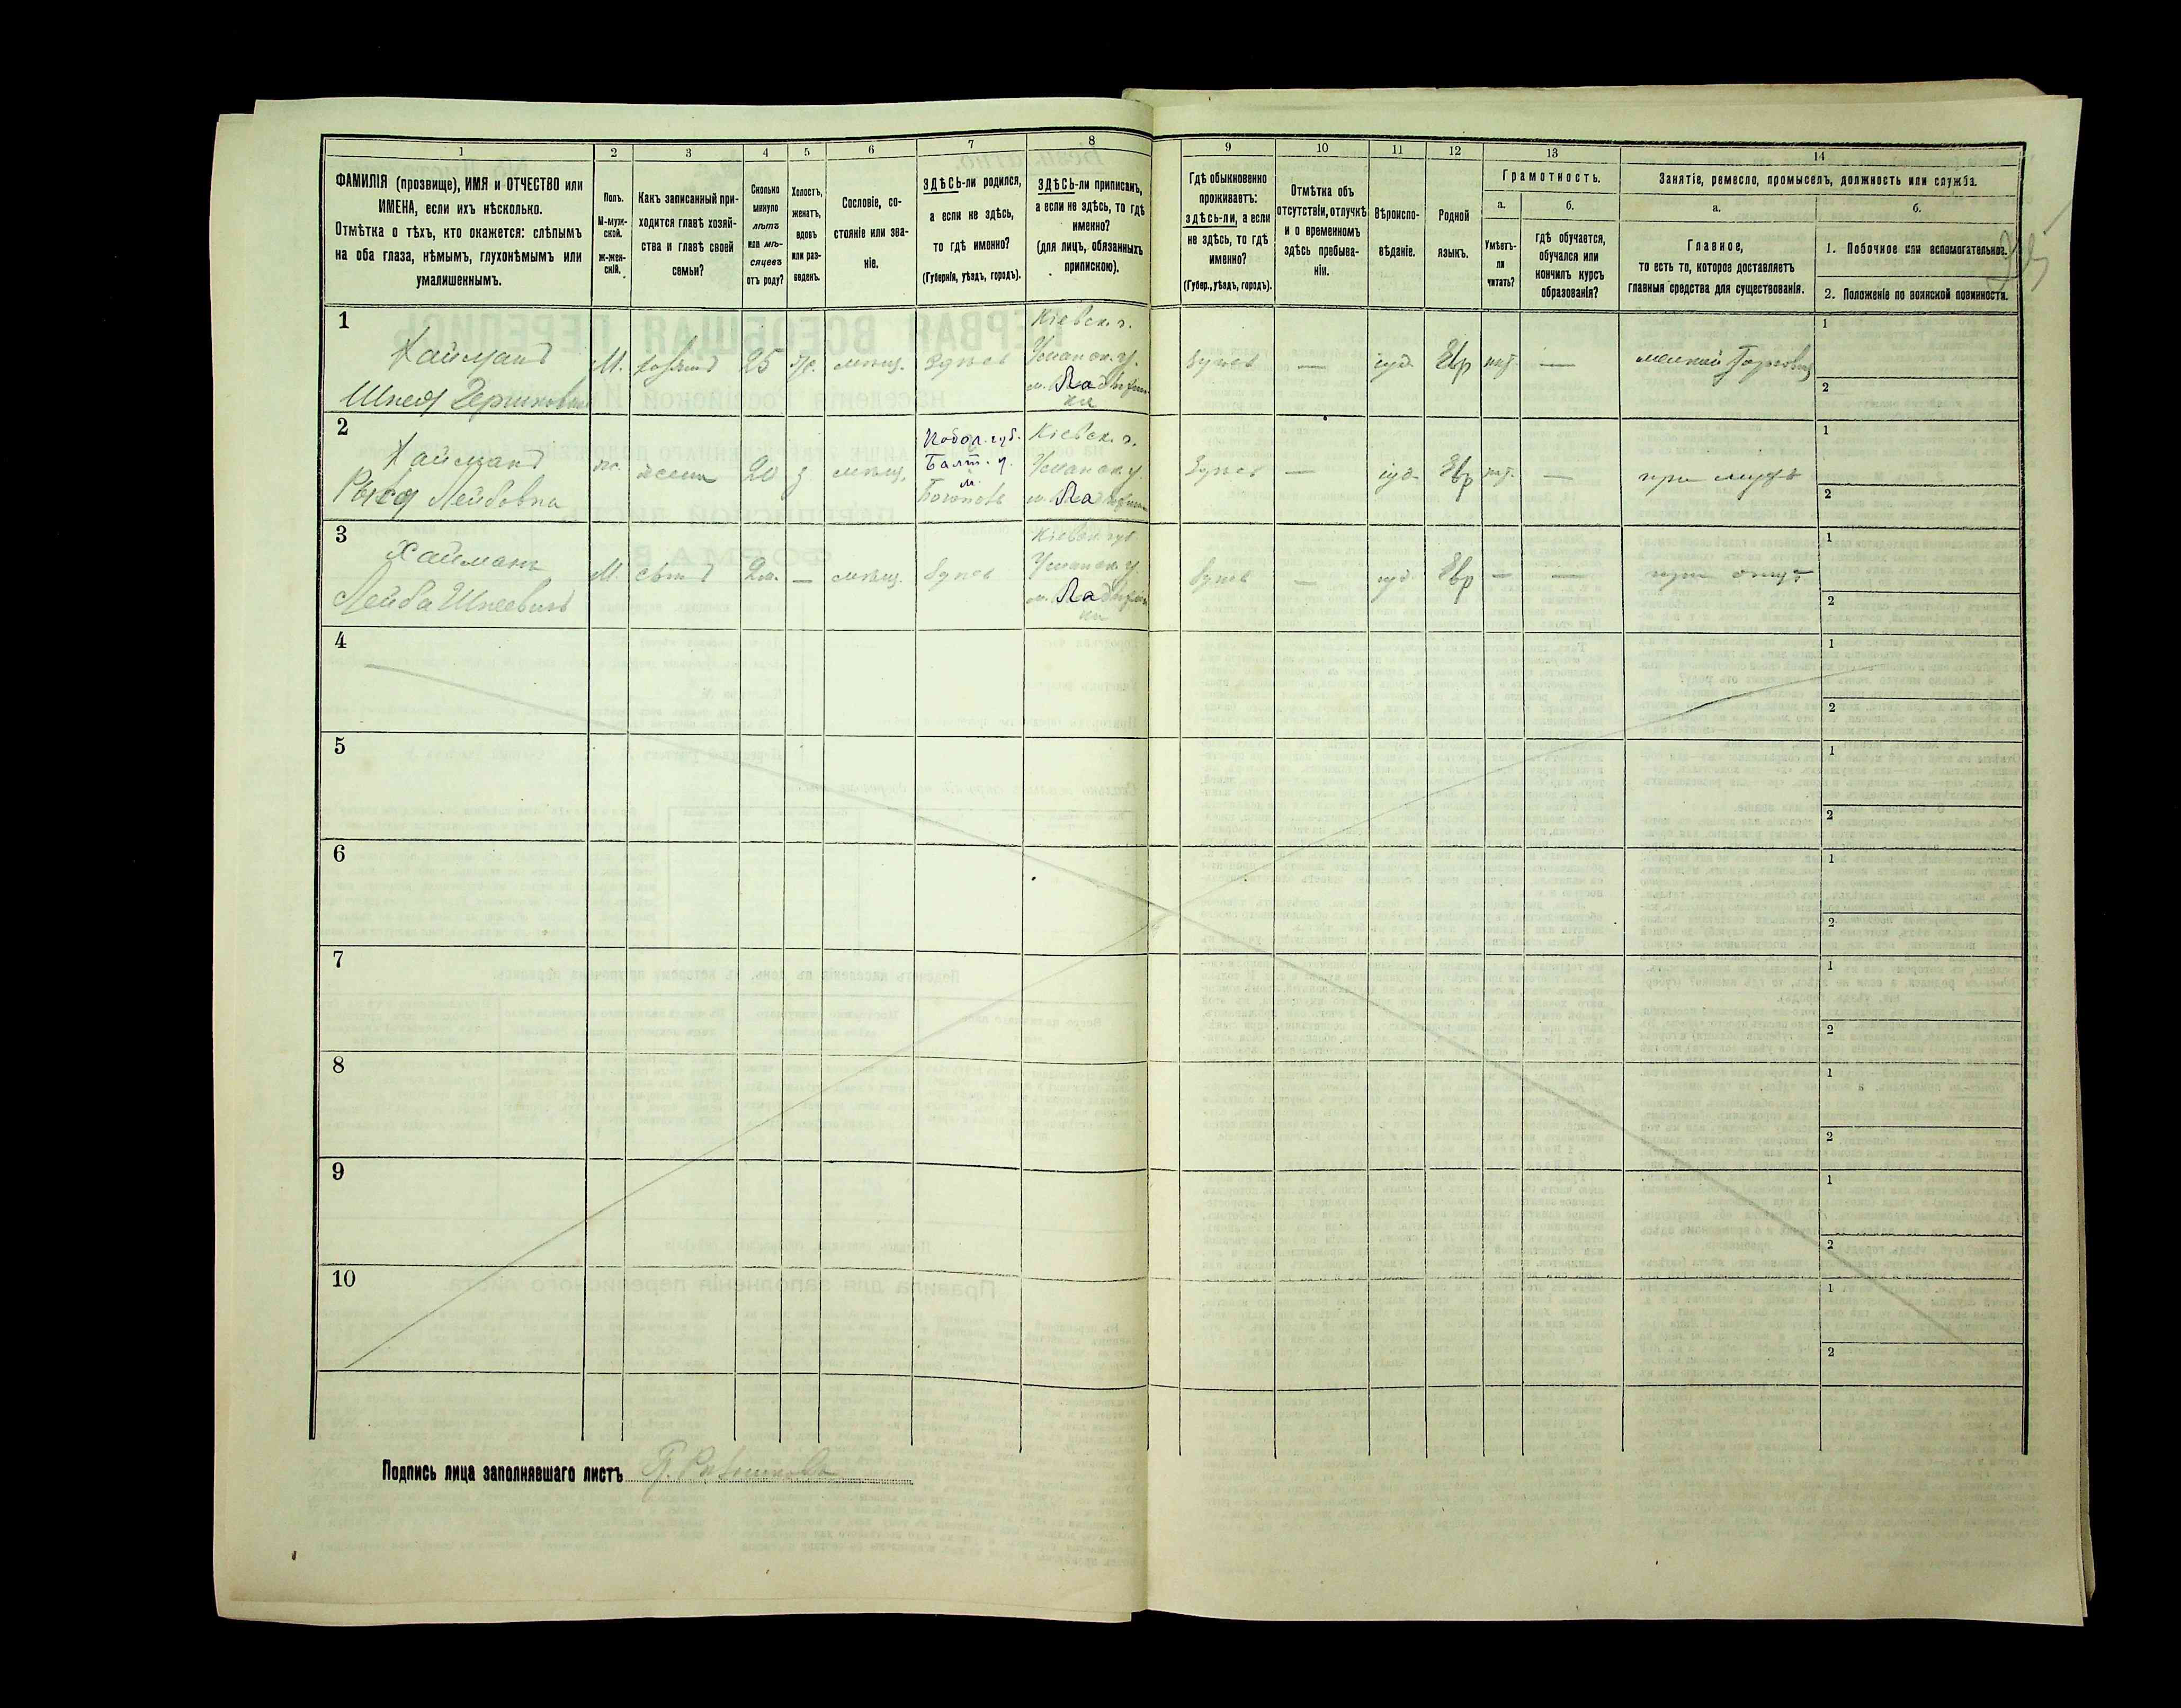 1
2
3
4
5
6
7
8
ФАМИЛІЯ (прозвище), ИМЯ и ОТЧЕСТВО или
ИМЕНА, если ихъ нѣсколько.
Отмѣтка о тѣхъ, кто окажется: слѣпымъ
на оба глаза, нѣмымъ, глухонѣмымъ или
умалишеннымъ.
Полъ.
М-муж-
ской.
ж-жен-
скій.
Какъ записанный при-
ходится главѣ хозяй-
ства и главѣ своей
семьи?
Сколько
минуло
лѣтъ
или мѣ-
сяцевъ
отъ роду?
Холостъ,
женатъ,
вдовъ
или раз-
веденъ.
Сословіе, со-
стояніе или зва-
ніе.
ЗДѢСЬ-ли родился,
а если не здѣсь,
то гдѣ именно?
(Губернія, уѣздъ, городъ).
ЗДѢСЬ-ли приписанъ,
а если не здѣсь, то гдѣ
именно?
(для лицъ, обязанныхъ
припискою).
9
10
11
12
13
14
Гдѣ обыкновенно
проживаетъ:
здѣсь-ли, а если
не здѣсь, то гдѣ
именно?
(Губер., уѣздъ, городъ).
Отмѣтка объ
отсутствіи, отлучкѣ
и о временномъ
здѣсь пребыва-
ніи.
Вѣроиспо-
вѣданіе.
Родной
языкъ.
Грамотность.
а.
Умѣетъ-
ли
читать?
б.
гдѣ обучается,
обучался или
кончилъ курсъ
образованія?
Занятіе, ремесло, промыселъ, должность или служба.
а.
Главное,
то есть то, которое доставляетъ
главныя средства для существованія.
б.
1. Побочное или вспомогательное.
2. Положеніе по воинской повинности.
1
Хайманъ
Шмея Гершковичъ
М.
хозяинъ
25
ж.
мѣщ.
Кіевск. г.
Уманск. у.
—
іуд.
Евр
—
мелкій Торговецъ
1
2
2
Хайманъ
Лейбовна
ж.
жена
20
з
мѣщ.
Подол. губ.
Балт. у.
м.
Кіевск. г.
Уманск. у.
—
іуд.
Евр
—
при мужѣ
1
2
3
Хайманъ
Лейба
М.
сынъ
—
мѣщ.
Кіевск. губ.
Уманск. у.
—
іуд.
Евр
—
—
при отцѣ
1
2
4
1
2
5
1
2
6
1
2
7
1
2
8
1
2
9
1
2
10
1
2
Подпись лица заполнявшаго листъ